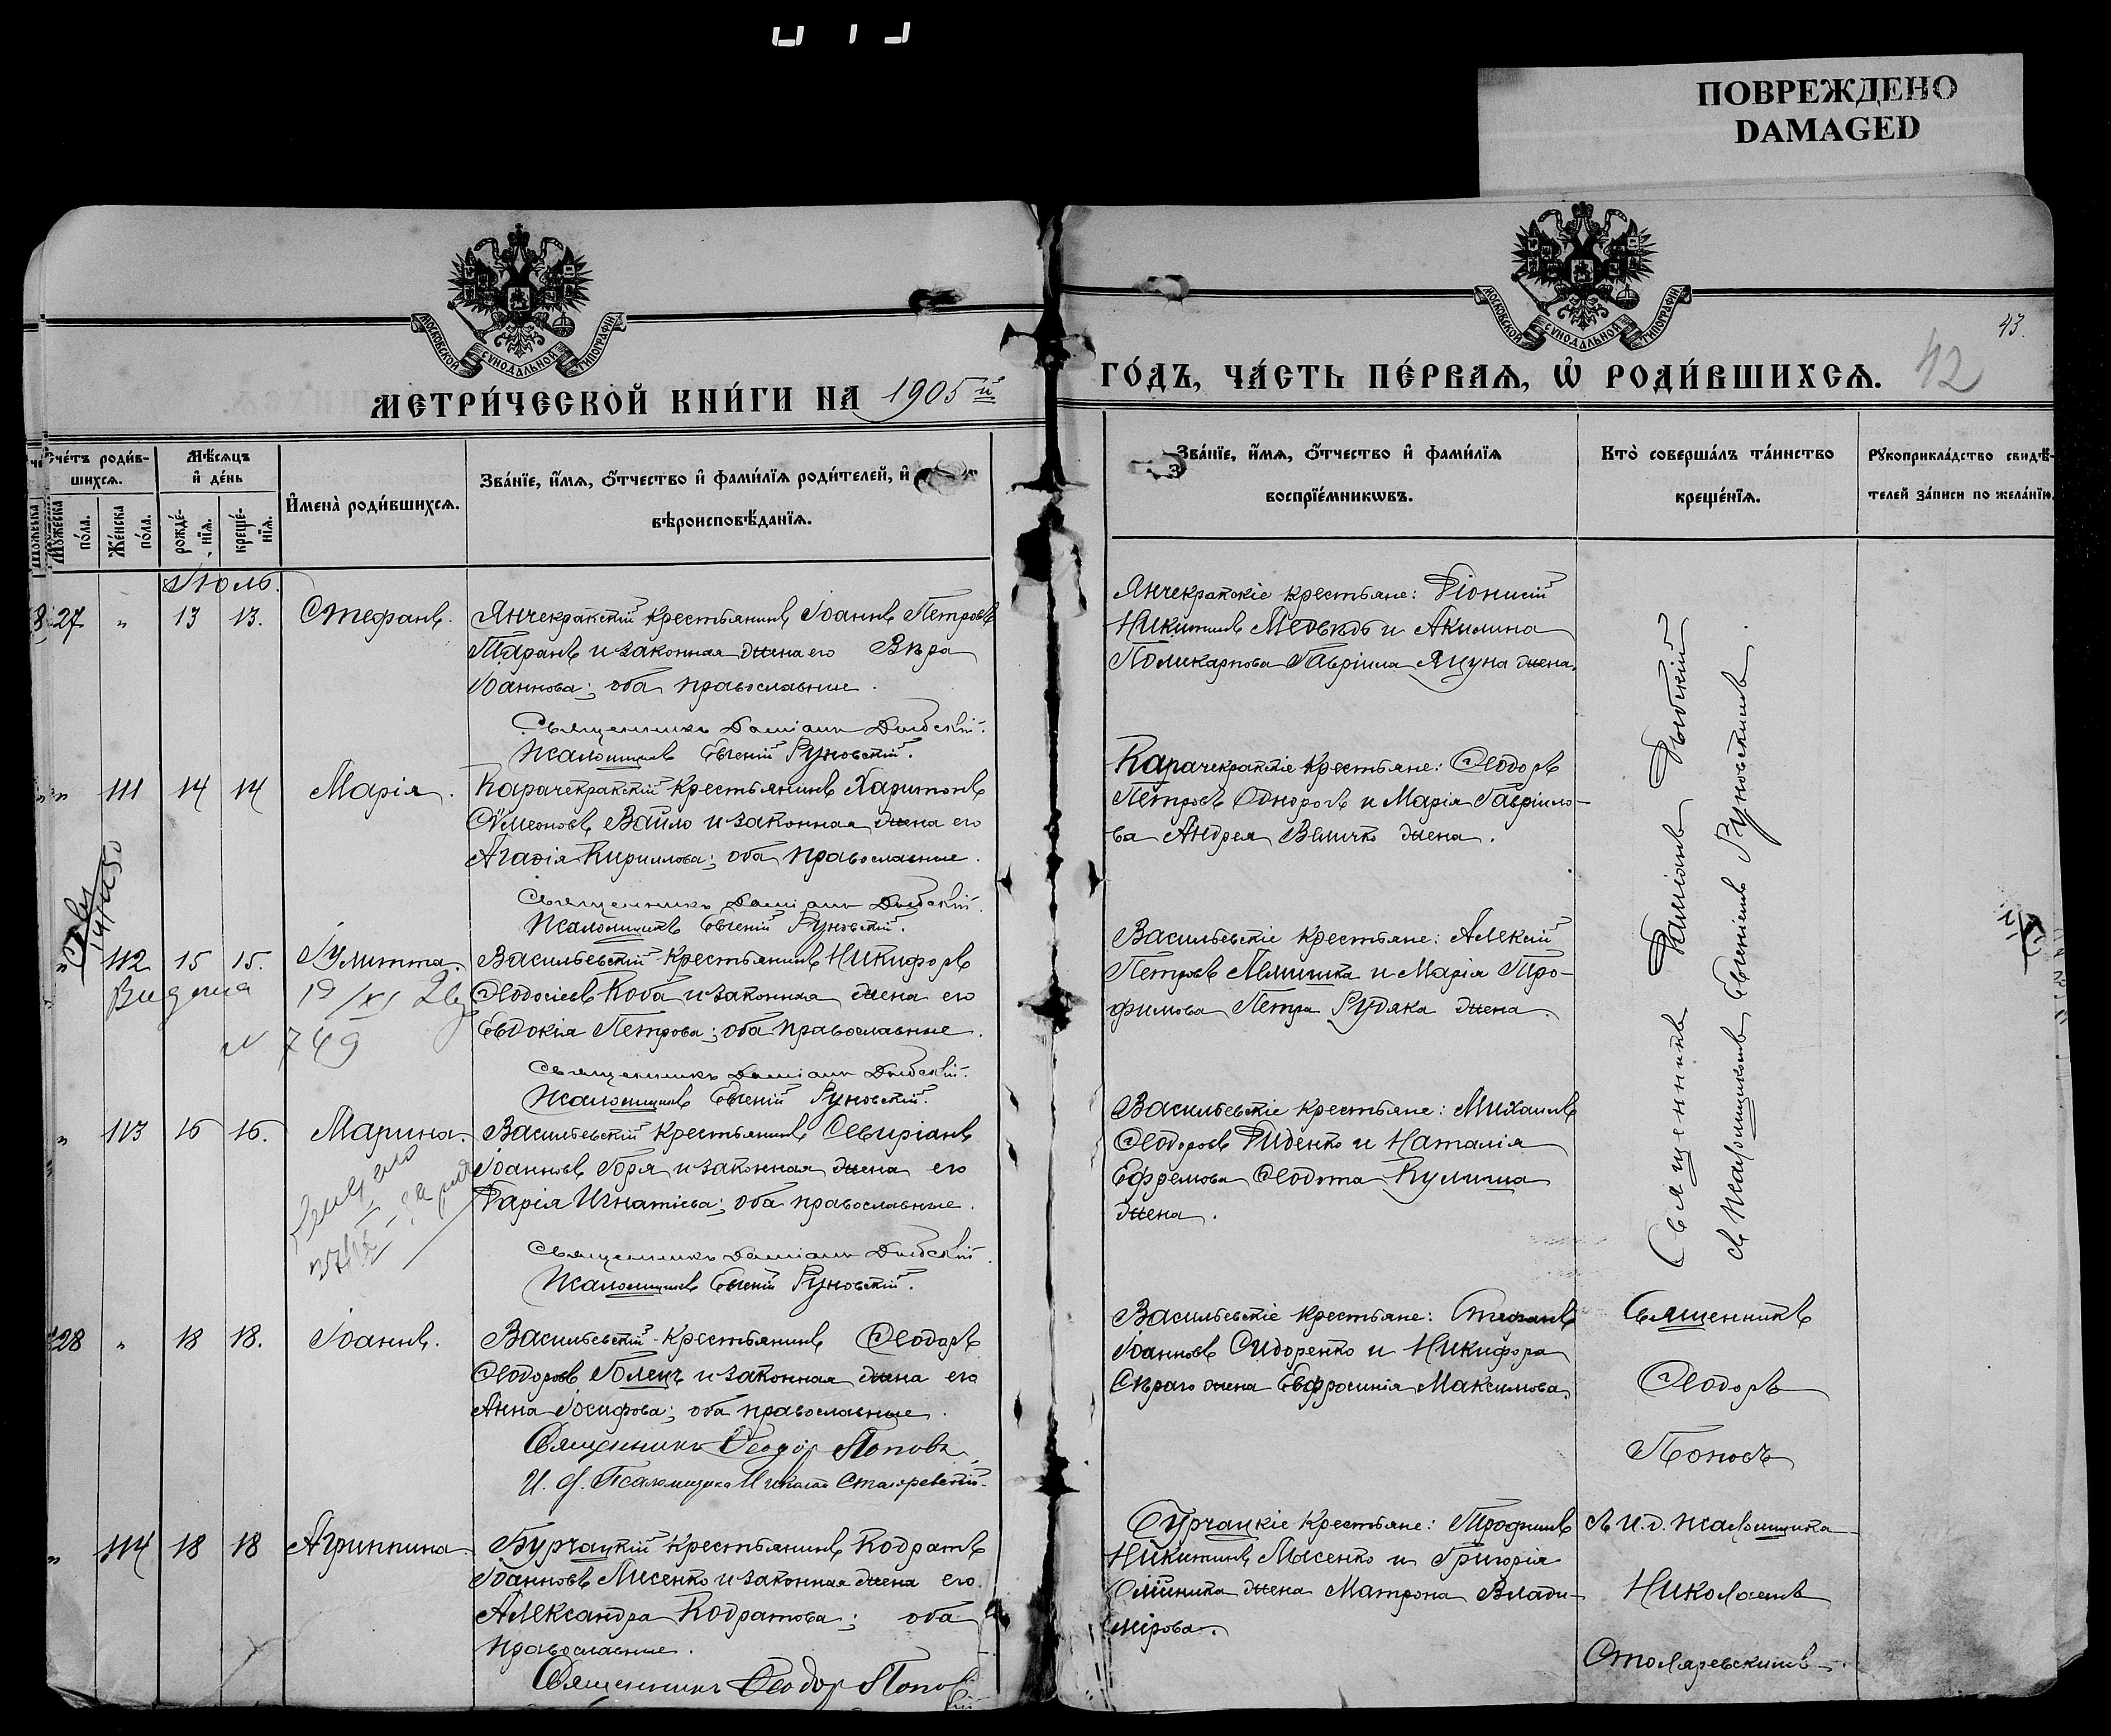 ПОВРЕЖДЕНО
DAMAGED
МОСКОВСКОЙ СѴНОДАЛЬНОЙ ТИПОГРАФІИ
МОСКОВСКОЙ СѴНОДАЛЬНОЙ ТИПОГРАФІИ
43.
42
МЕТРИ́ЧЕСКОЙ КНИ́ГИ НА 1905й
ГО́ДЪ, ЧА́СТЬ ПЕ́РВАѦ, Ѡ РОДИ́ВШИХСѦ.
Счетъ роди́в-
шихсѧ.
Му́жеска по́ла.
Же́нска по́ла.
Мѣсѧцъ
и де́нь
рожде́-
нїѧ.
креще́-
нїѧ.
Имена̀ роди́вшихсѧ.
Зва́нїе, и́мѧ, о́тчество и фами́лїѧ роди́телей, и
вѣроисповѣданїѧ.
Зва́нїе, и́мѧ, о́тчество и фами́лїѧ
воспрїе́мникωвъ.
Кто̀ соверша́лъ та́инство
креще́нїѧ.
Рꙋкоприкла́дство свидѣ-
телей за́писи по жела́нїю.
Іюль.
27 " 13 13. Стефанъ.
Янчекракскій крестьянинъ Іоаннъ Петровъ
Таранъ и законная жена его Вѣра
Іоаннова; оба православные.
Священникъ Даміанъ Дыбскій.
Псаломщикъ Евгеній Руновскій.
Янчекракскіе крестьяне: Діонисій
Никитинъ Медвѣдь и Акилина
Поликарпова Гавріила Яцуна жена.
" 111 14 14 Марія.
Карачекракскій крестьянинъ Харитонъ
Сѵмеоновъ Вайло и законная жена его
Агафія Кириллова; оба православные.
Священникъ Даміанъ Дыбскій.
Псаломщикъ Евгеній Руновскій.
Карачекракскіе крестьяне: Ѳеодоръ
Петровъ Однорогъ и Марія Гаврiило-
ва Андрея Величко жена.
" 112 15 15. Іулитта.
Васильевскій крестьянинъ Никифоръ
Ѳеодосіевъ Коба и законная жена его
Евдокія Петрова; оба православные.
Священникъ Даміанъ Дыбскій.
Псаломщикъ Евгеній Руновскій.
Васильевскіе крестьяне: Алексій
Петровъ и Марія Тро-
фимова Петра Рудяка жена.
Видана
№ 749
" 113 16 16. Марина.
Васильевскій крестьянинъ Севиріанъ
Іоанновъ Горя и законная жена его
Дарія Игнатіева; оба православные.
Священникъ Даміанъ Дыбскій
Псаломщикъ Евгеній Руновскій.
Васильевскіе крестьяне: Михаилъ
Ѳеодоровъ Диденко и Наталія
Ефремова Ѳеодота Кулиша
жена.
Священникъ Даміанъ Дыбскій
съ псаломщикомъ Евгеніемъ Руновскимъ.
128 " 18 18. Іоаннъ.
Васильевскій крестьянинъ Ѳеодоръ
Ѳеодоровъ Голецъ и законная жена его
Анна Іосифова; оба православные.
Священникъ Ѳеодоръ Поповъ
И. д. Псаломщика Николай Столяревскій.
Васильевскіе крестьяне: Стефанъ
Іоанновъ Сидоренко и Никифора
Сѣраго жена Евфросинія Максимова.
Священникъ
Ѳеодоръ
Поповъ
" 114 18 18 Агриппина.
Бурчацкій крестьянинъ Кодратъ
Іоанновъ Лисенко и законная жена его
Александра Кодратова; оба
православные.
Священникъ Ѳеодор Попов
Бурчацкіе крестьяне: Трофимъ
Никитинъ Лысенко и Григорія
Олійника жена Матрона Влади-
мірова.
съ И. д. псаломщика
Николаемъ
Столяревскимъ.